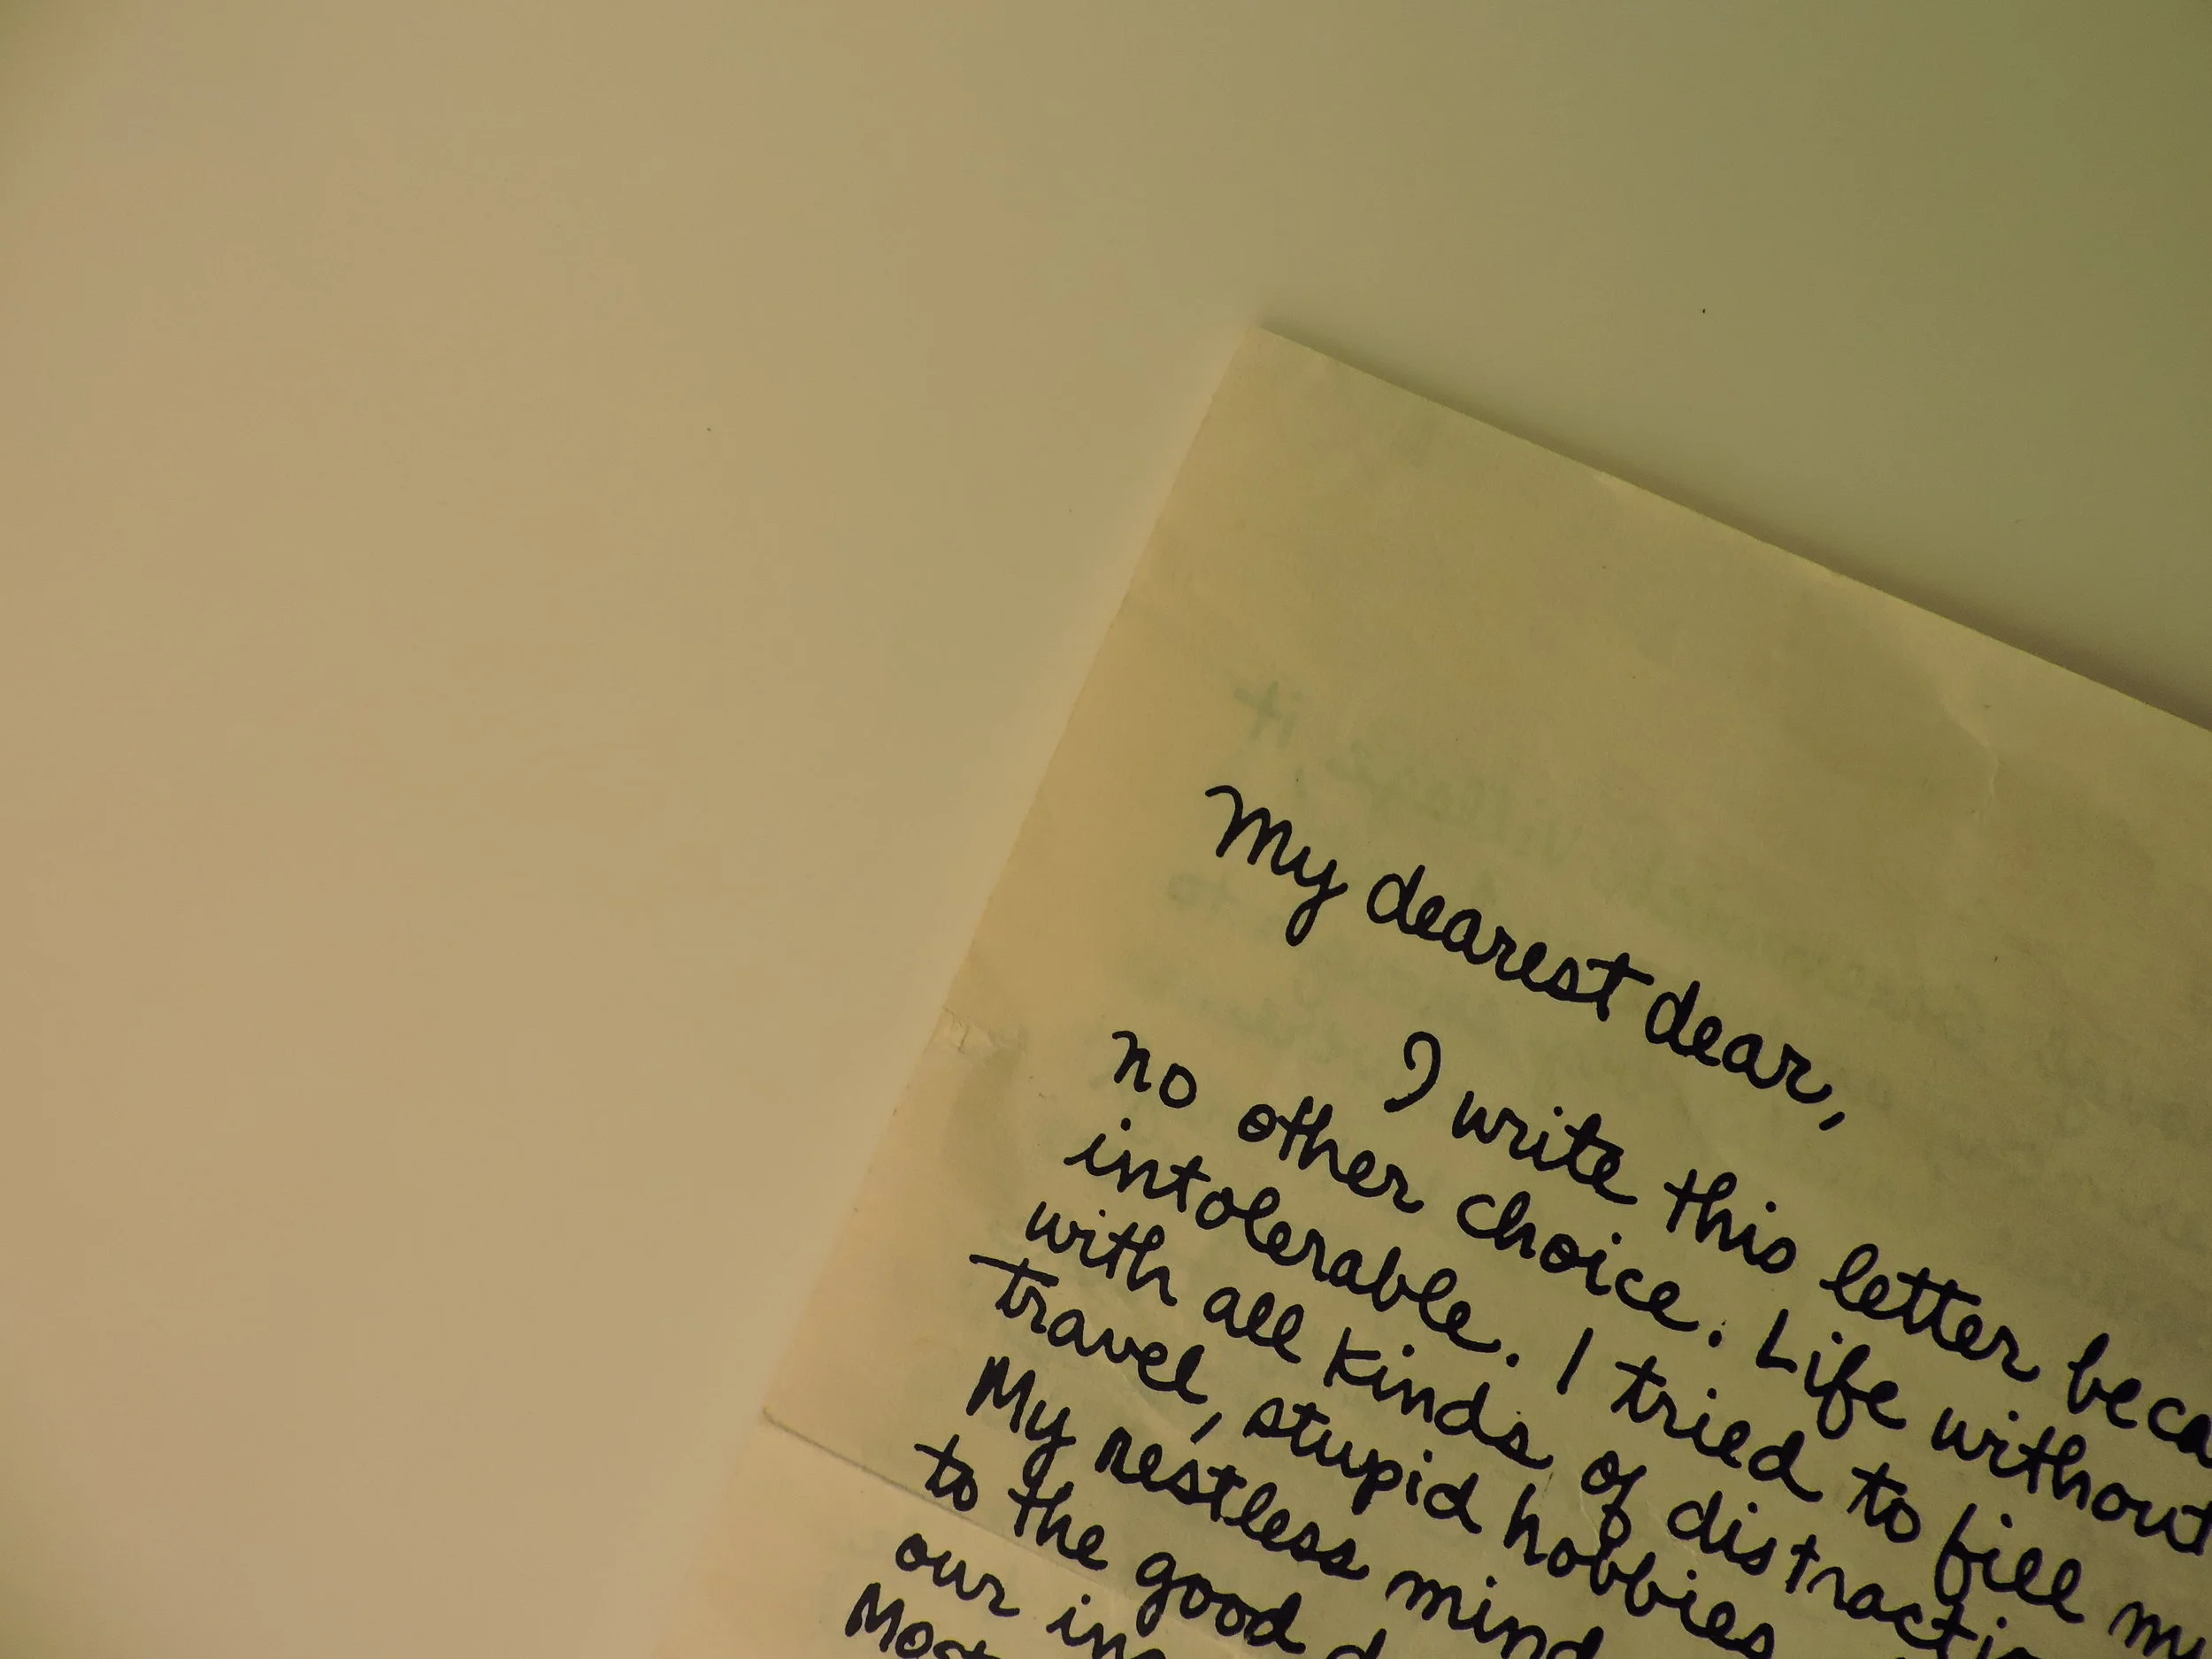 My dearest dear,
I write this letter beca
no other choice. Life without
intolerable. I tried to fill my
with all kinds of distracti
travel, stupid hobbies
My restless mind
to the good d
our in
Most